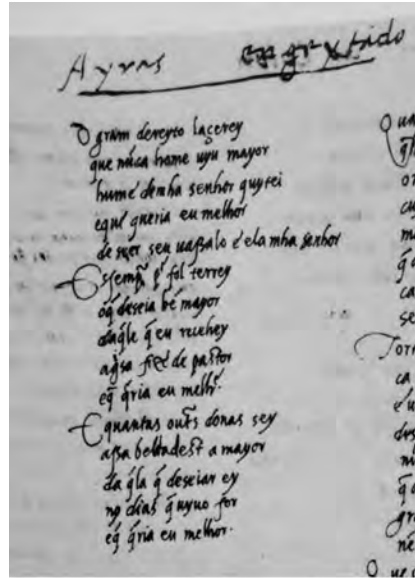 Ayras engeytado
O gram dereyto laçerey
que nũca home uyu mayor
hume demha senhor quytei
equé queria eu melhor
de seer seu uassalo é ela mha senhor
E ssemp̃ p̃ fol terrey
oq̃ deseia bẽ mayor
daq̃le q̃ eu receḅey
aq̃sa de pastor
eq̃ q̃ria eu melhr̃.
E quantas outs̃ donas sey
assa beltadest a mayor
da q̃la q̃ deseiar ey
nos dias q̃ uyuo for
eq̃ q̃ria eu melhor.
O
q̃
or
cu
m
q̃
ca
se
Torn
ca
é u
des
ni
q̃
gra
né
O